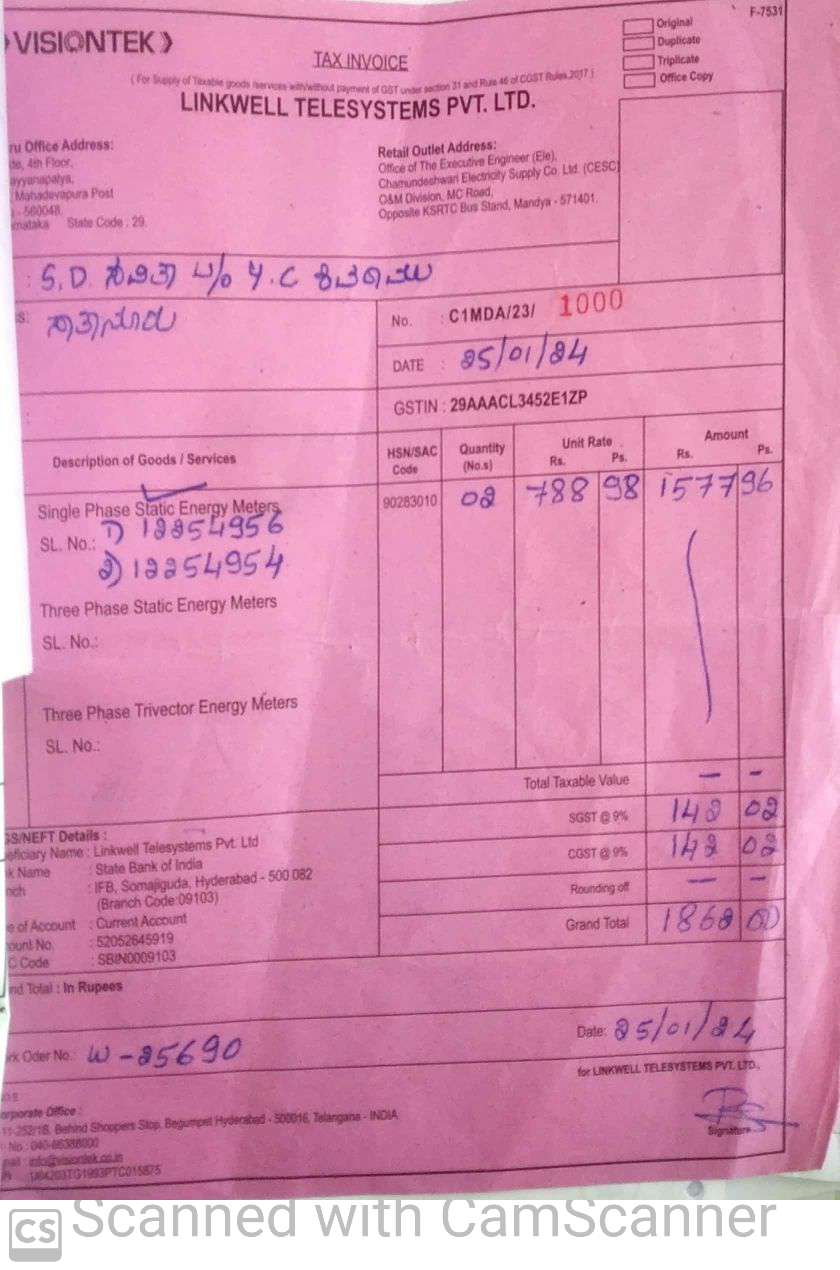 VISIONTEK
F-7531
Original
Duplicate
Triplicate
Office Copy
TAX INVOICE
( For Supply of Taxable goods /services with/without payment of GST under section 31 and Rule 46 of CGST Rules.2017 )
LINKWELL TELESYSTEMS PVT. LTD.
ru Office Address:
4th Floor,
ayyanapalya,
Mahadevapura Post
- 560048,
rnataka State Code : 29.
Retail Outlet Address:
Office of The Executive Engineer (Ele),
Chamundeshwari Electricity Supply Co. Ltd. (CESC)
O&M Division, MC Road,
Opposite KSRTC Bus Stand, Mandya - 571401.
: S.D. ಸವಿತಾ W/o Y.C
No. : C1MDA/23/ 1000
DATE : 25/01/24
GSTIN : 29AAACL3452E1ZP
Description of Goods / Services
HSN/SAC Code
Quantity (No.s)
Unit Rate Rs. Ps.
Amount Rs. Ps.
Single Phase Static Energy Meters 90283010 02 788 98 1577 96
SL. No.: 1) 12254956
2) 12254954
Three Phase Static Energy Meters
SL. No.:
Three Phase Trivector Energy Meters
SL. No.:
Total Taxable Value — -
SGST @ 9% 142 02
CGST @ 9% 142 02
Rounding off — -
Grand Total 1862 00
GS/NEFT Details :
eficiary Name : Linkwell Telesystems Pvt. Ltd
k Name : State Bank of India
nch : IFB, Somajiguda, Hyderabad - 500 082
(Branch Code:09103)
e of Account : Current Account
ount No. : 52052645919
C Code : SBIN0009103
nd Total : In Rupees
rk Oder No.: W-25690
Date: 25/01/24
for LINKWELL TELESYSTEMS PVT. LTD.,
Signature
orporate Office :
11-252/1B, Behind Shoppers Stop, Begumpet Hyderabad - 500016, Telangana - INDIA
No : 040-66388000
mail : info@visiontek.co.in
U64203TG1993PTC015875
CS Scanned with CamScanner